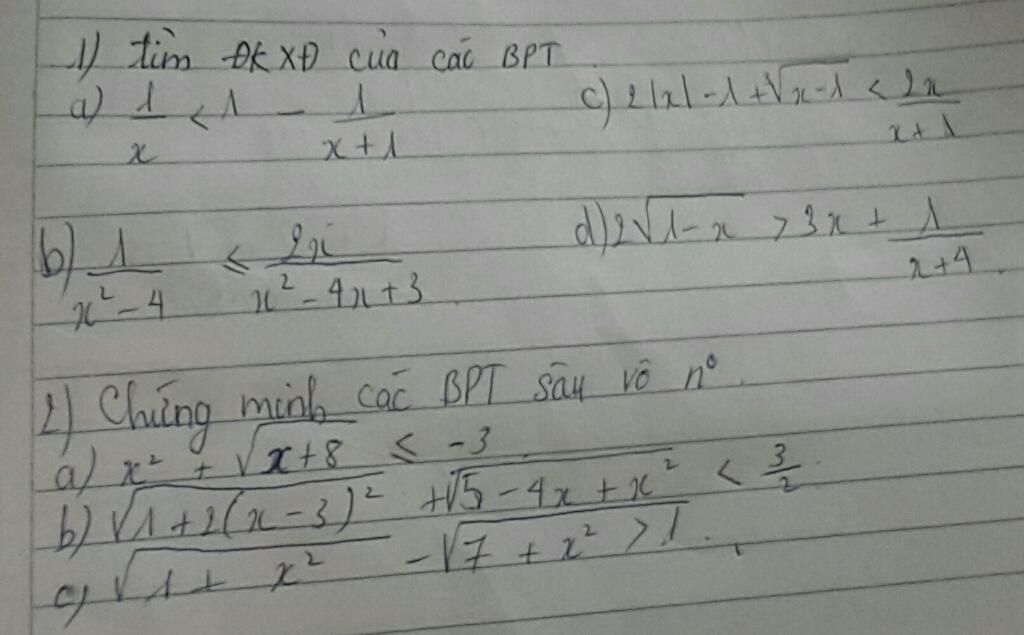 1) tìm ĐKXĐ của các BPT
a) 1/x < 1 - 1/(x+1)   c) 2|x| - 1 + ∛(x-1) < 2x/(x+1)
b) 1/(x²-4) ≤ 2x/(x²-4x+3)   d) 2√(1-x) > 3x + 1/(x+4)
2) Chứng minh các BPT sau vô n⁰.
a) x² + √(x+8) ≤ -3
b) √(1+2(x-3)²) + √(5-4x+x²) < 3/2.
c) √(1+x²) - √(7+x²) > 1.